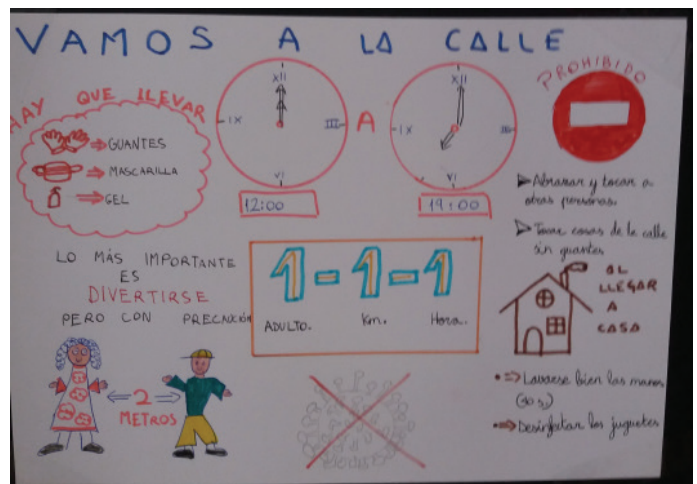 VAMOS A LA CALLE
HAY QUE LLEVAR
GUANTES
MASCARILLA
GEL
XII
III
VI
IX
12:00
A
XII
III
VI
IX
19:00
PROHIBIDO
Abrazar y tocar a
otras personas.
Tocar cosas de la calle
sin guantes
LO MÁS IMPORTANTE
ES
DIVERTIRSE
PERO CON PRECAUCIÓN
2
METROS
1-1-1
ADULTO. Km. Hora.
AL
LLEGAR
A
CASA
Lavarse bien las manos
Desinfectar los juguetes